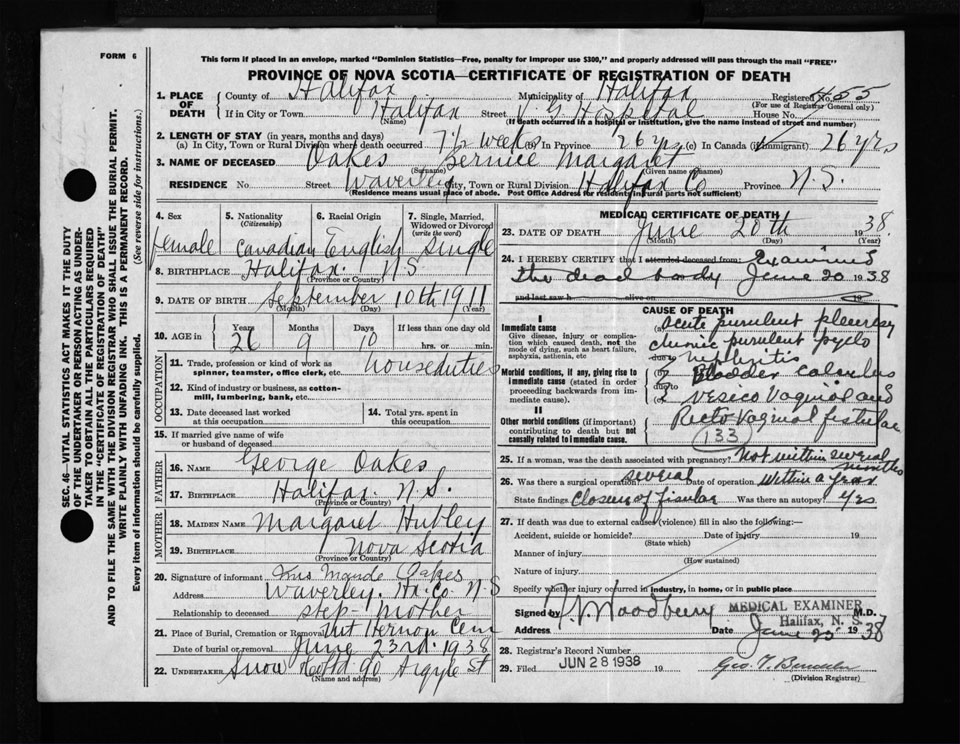 FORM 6
This form if placed in an envelope, marked "Dominion Statistics—Free, penalty for improper use $300," and properly addressed will pass through the mail "FREE"
PROVINCE OF NOVA SCOTIA—CERTIFICATE OF REGISTRATION OF DEATH
1. PLACE OF DEATH County of Halifax Municipality of Halifax Registered No. 455
(For use of Registrar General only)
If in City or Town Halifax Street V. G. Hospital House No.
(Name) (If death occurred in a hospital or institution, give the name instead of street and number)
2. LENGTH OF STAY (in years, months and days)
(a) In City, Town or Rural Division where death occurred 7½ weeks (b) In Province 26 yrs (c) In Canada (if immigrant) 26 yrs
3. NAME OF DECEASED Oakes Bernice Margaret
(Surname) (Given name or names)
RESIDENCE No Street Waverley City, Town or Rural Division Halifax Co Province N.S.
(Residence means usual place of abode. Post Office Address for residents in rural parts not sufficient)
4. Sex 5. Nationality (Citizenship) 6. Racial Origin 7. Single, Married, Widowed or Divorced (write the word)
female Canadian English Single
8. BIRTHPLACE Halifax. N.S.
(Province or Country)
9. DATE OF BIRTH September 10th 1911
(Month) (Day) (Year)
10. AGE in Years Months Days If less than one day old
26 9 10 hrs. or min.
OCCUPATION
11. Trade, profession or kind of work as spinner, teamster, office clerk, etc. houseduties
12. Kind of industry or business, as cotton-mill, lumbering, bank, etc.
13. Date deceased last worked at this occupation 14. Total yrs. spent in this occupation
15. If married give name of wife or husband of deceased
FATHER
16. NAME George Oakes
17. BIRTHPLACE Halifax. N.S.
(Province or Country)
MOTHER
18. MAIDEN NAME Margaret Hubley
19. BIRTHPLACE Nova Scotia
(Province or Country)
20. Signature of informant Mrs Maude Oakes
Address Waverley. Hx. Co. N.S
Relationship to deceased step-mother
21. Place of Burial, Cremation or Removal Mt Hermon Cem
Date of burial or removal June 23rd. 1938
22. UNDERTAKER Snow & Co Ltd 90 Argyle St
(Name and address)
MEDICAL CERTIFICATE OF DEATH
23. DATE OF DEATH June 20th 1938.
(Month) (Day) (Year)
24. I HEREBY CERTIFY that I attended deceased from: Examined
the dead body June 20 1938
and last saw h alive on 19
I
Immediate cause
Give disease, injury, or complication which caused death, not the mode of dying, such as heart failure, asphyxia, asthenia, etc
Morbid conditions, if any, giving rise to immediate cause (stated in order proceeding backwards from immediate cause).
II
Other morbid conditions (if important) contributing to death but not causally related to immediate cause.
CAUSE OF DEATH
(a) Acute purulent pleurisy
chronic purulent pyelo
due to nephritis
(b) Bladder calculus
due to
2 vesico Vaginal and
Recto Vaginal fistulae
133
25. If a woman, was the death associated with pregnancy? Not within several months
26. Was there a surgical operation several Date of operation Within a year
State findings Closure of fistular Was there an autopsy? Yes
27. If death was due to external causes (violence) fill in also the following:—
Accident, suicide or homicide? Date of injury 19
(State which)
Manner of injury
(How sustained)
Nature of injury
Specify whether injury occurred in industry, in home, or in public place
Signed by Woodbury MEDICAL EXAMINER M.D.
Halifax, N. S.
Address Date June 20 1938
28. Registrar's Record Number
29. Filed JUN 28 1938 19
(Division Registrar)
SEC. 46—VITAL STATISTICS ACT MAKES IT THE DUTY OF THE UNDERTAKER OR PERSON ACTING AS UNDERTAKER TO OBTAIN ALL THE PARTICULARS REQUIRED IN THE "CERTIFICATE OF REGISTRATION OF DEATH"
AND TO FILE THE SAME WITH THE DIVISION REGISTRAR WHO SHALL ISSUE THE BURIAL PERMIT.
WRITE PLAINLY WITH UNFADING INK. THIS IS A PERMANENT RECORD.
Every item of information should be carefully supplied. (See reverse side for instructions.)